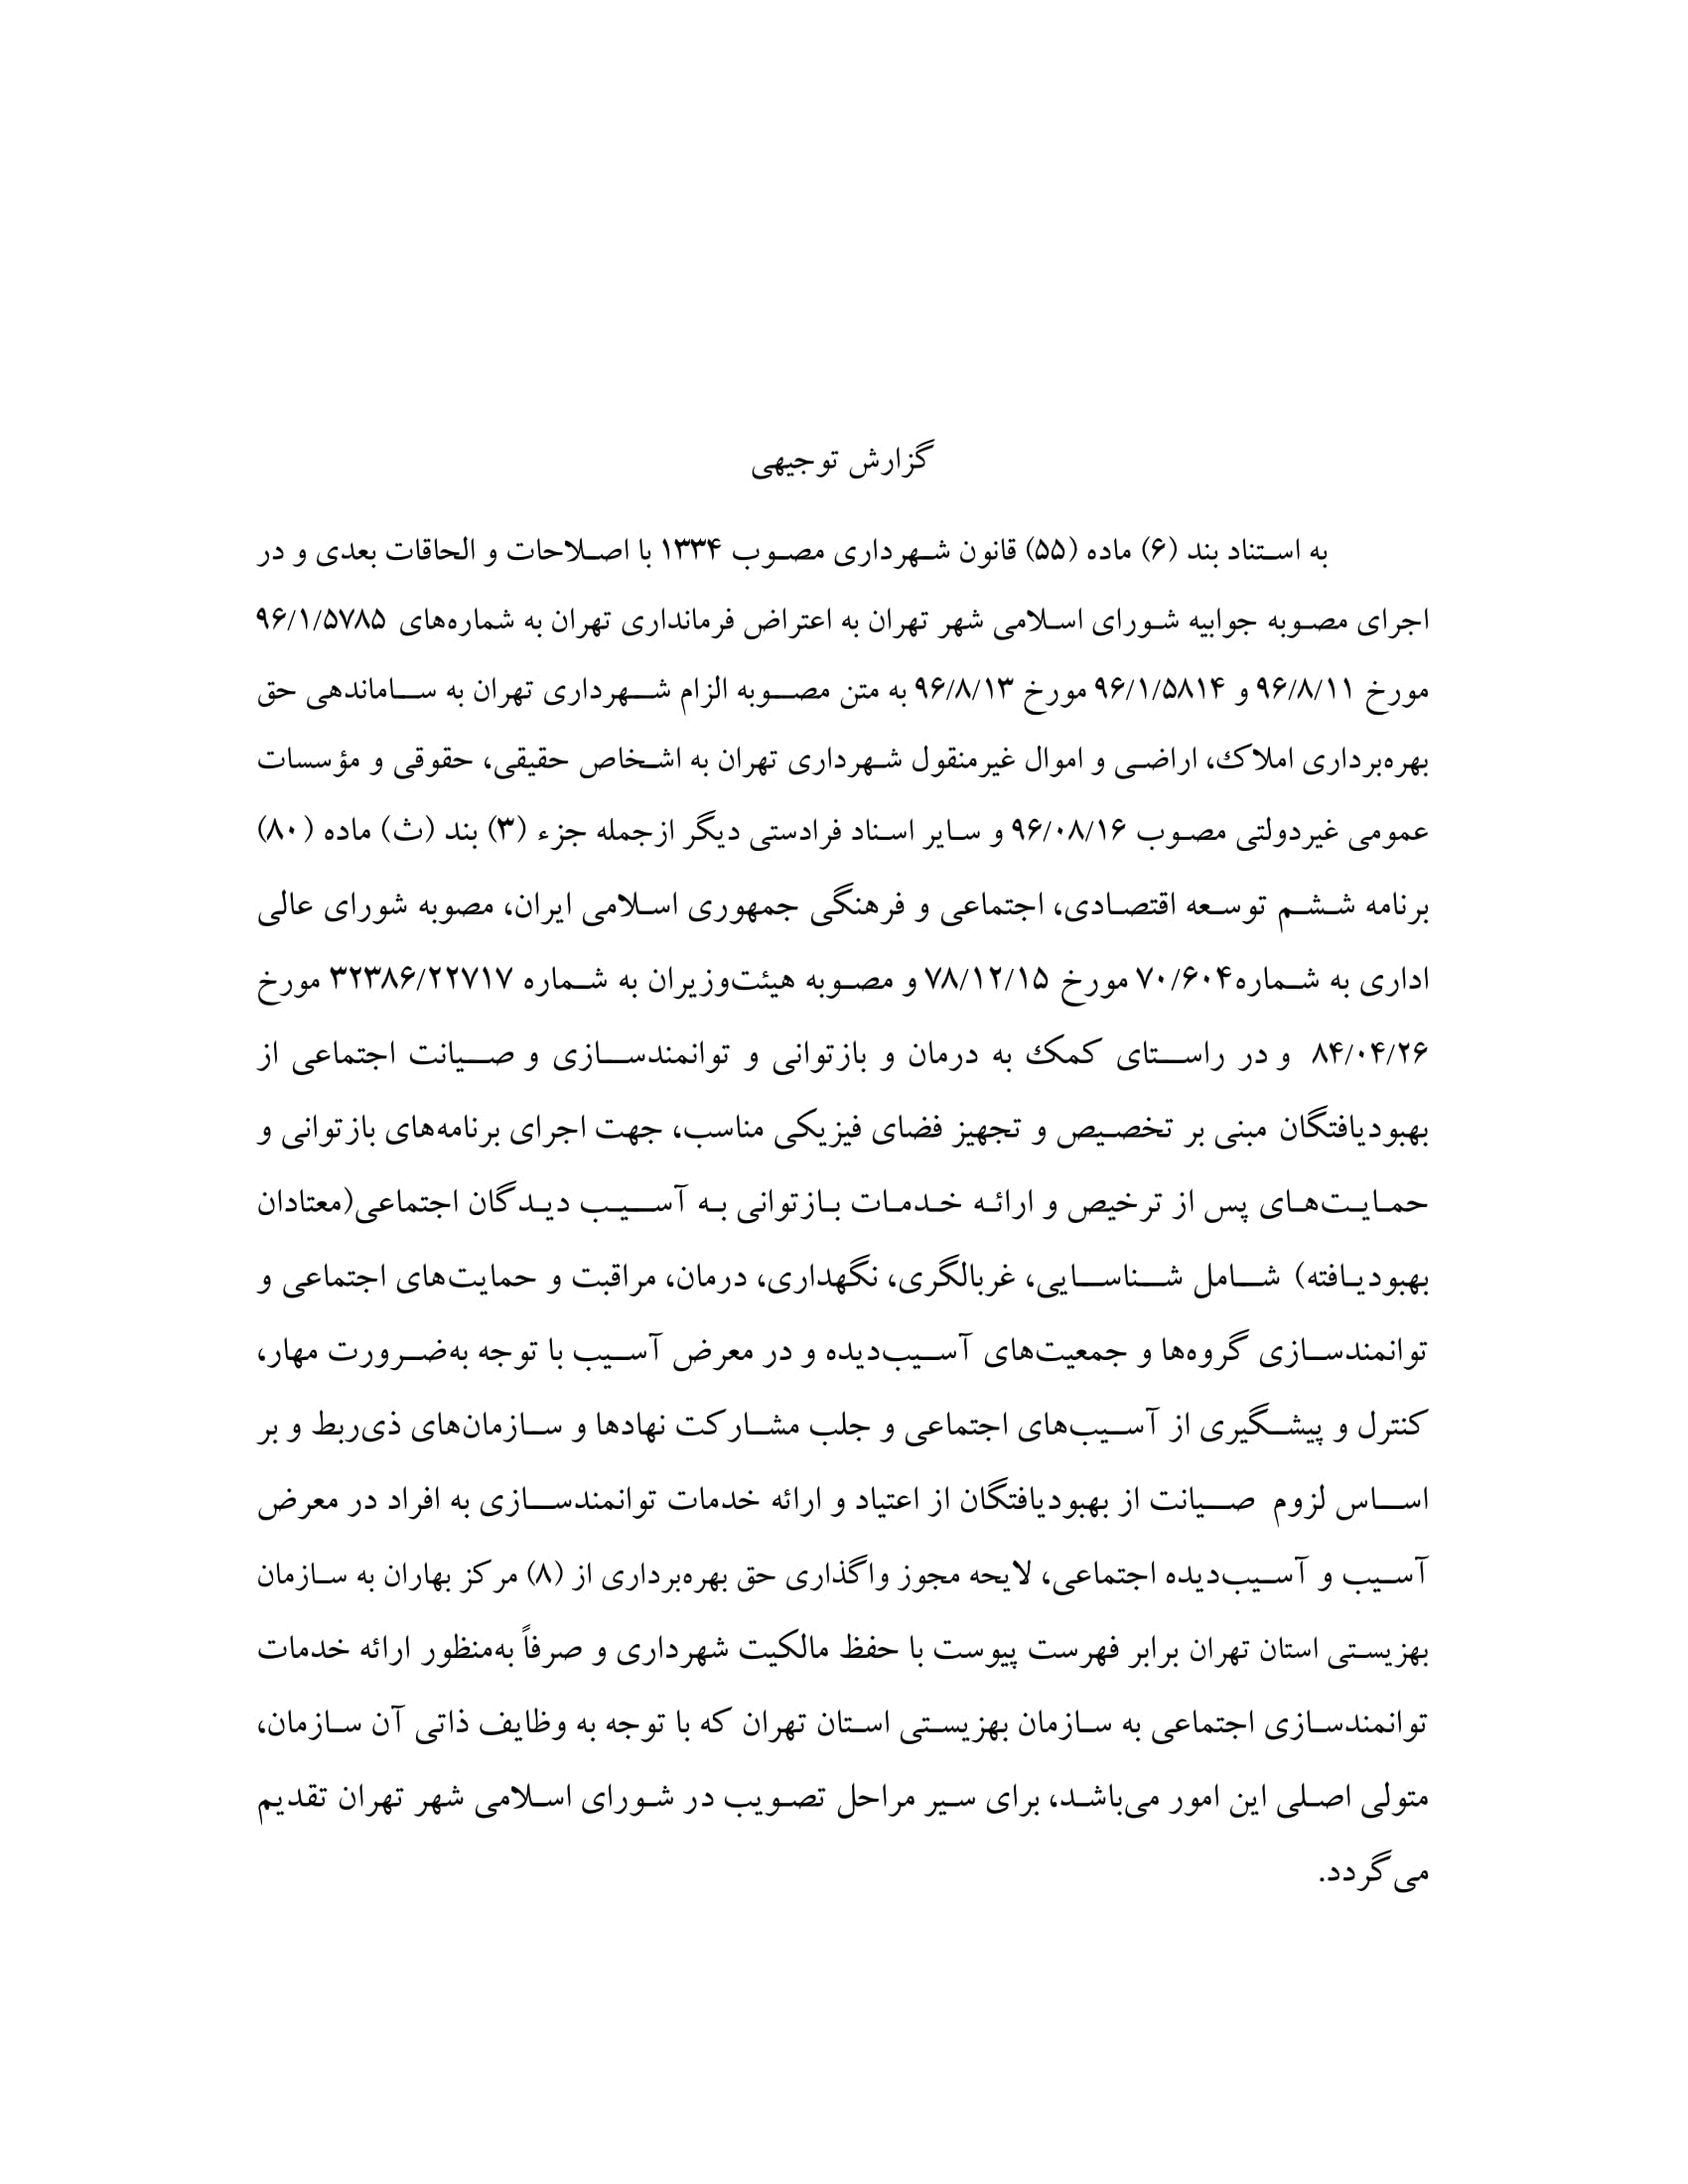 گزارش توجیهی
به استناد بند (۶) ماده (۵۵) قانون شهرداری مصوب ۱۳۳۴ با اصلاحات و الحاقات بعدی و در
اجرای مصوبه جوابیه شورای اسلامی شهر تهران به اعتراض فرمانداری تهران به شماره‌های ۹۶/۱/۵۷۸۵
مورخ ۹۶/۸/۱۱ و ۹۶/۱/۵۸۱۴ مورخ ۹۶/۸/۱۳ به متن مصوبه الزام شهرداری تهران به ساماندهی حق
بهره‌برداری املاک، اراضی و اموال غیرمنقول شهرداری تهران به اشخاص حقیقی، حقوقی و مؤسسات
عمومی غیردولتی مصوب ۹۶/۰۸/۱۶ و سایر اسناد فرادستی دیگر ازجمله جزء (۳) بند (ث) ماده (۸۰)
برنامه ششم توسعه اقتصادی، اجتماعی و فرهنگی جمهوری اسلامی ایران، مصوبه شورای عالی
اداری به شماره۷۰/۶۰۴ مورخ ۷۸/۱۲/۱۵ و مصوبه هیئت‌وزیران به شماره ۳۲۳۸۶/۲۲۷۱۷ مورخ
۸۴/۰۴/۲۶ و در راستای کمک به درمان و بازتوانی و توانمندسازی و صیانت اجتماعی از
بهبودیافتگان مبنی بر تخصیص و تجهیز فضای فیزیکی مناسب، جهت اجرای برنامه‌های بازتوانی و
حمایت‌های پس از ترخیص و ارائه خدمات بازتوانی به آسیب دیدگان اجتماعی(معتادان
بهبودیافته) شامل شناسایی، غربالگری، نگهداری، درمان، مراقبت و حمایت‌های اجتماعی و
توانمندسازی گروه‌ها و جمعیت‌های آسیب‌دیده و در معرض آسیب با توجه به‌ضرورت مهار،
کنترل و پیشگیری از آسیب‌های اجتماعی و جلب مشارکت نهادها و سازمان‌های ذی‌ربط و بر
اساس لزوم صیانت از بهبودیافتگان از اعتیاد و ارائه خدمات توانمندسازی به افراد در معرض
آسیب و آسیب‌دیده اجتماعی، لایحه مجوز واگذاری حق بهره‌برداری از (۸) مرکز بهاران به سازمان
بهزیستی استان تهران برابر فهرست پیوست با حفظ مالکیت شهرداری و صرفاً به‌منظور ارائه خدمات
توانمندسازی اجتماعی به سازمان بهزیستی استان تهران که با توجه به وظایف ذاتی آن سازمان،
متولی اصلی این امور می‌باشد، برای سیر مراحل تصویب در شورای اسلامی شهر تهران تقدیم
می‌گردد.